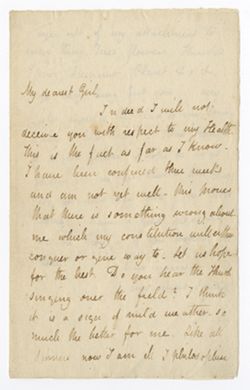 My dearest Girl,
Indeed I will not
deceive you with respect to my Health.
This is the fact as far as I know.
I have been confined three weeks
and am not yet well. this proves
that there is something wrong about
me which my constitution will either
conquer or give way to. Let us hope
for the best. Do you hear the Thrush
singing over the field? I think
it is a sign of mild weather. so
much the better for me. Like all
Sinners now I am ill I philosophise